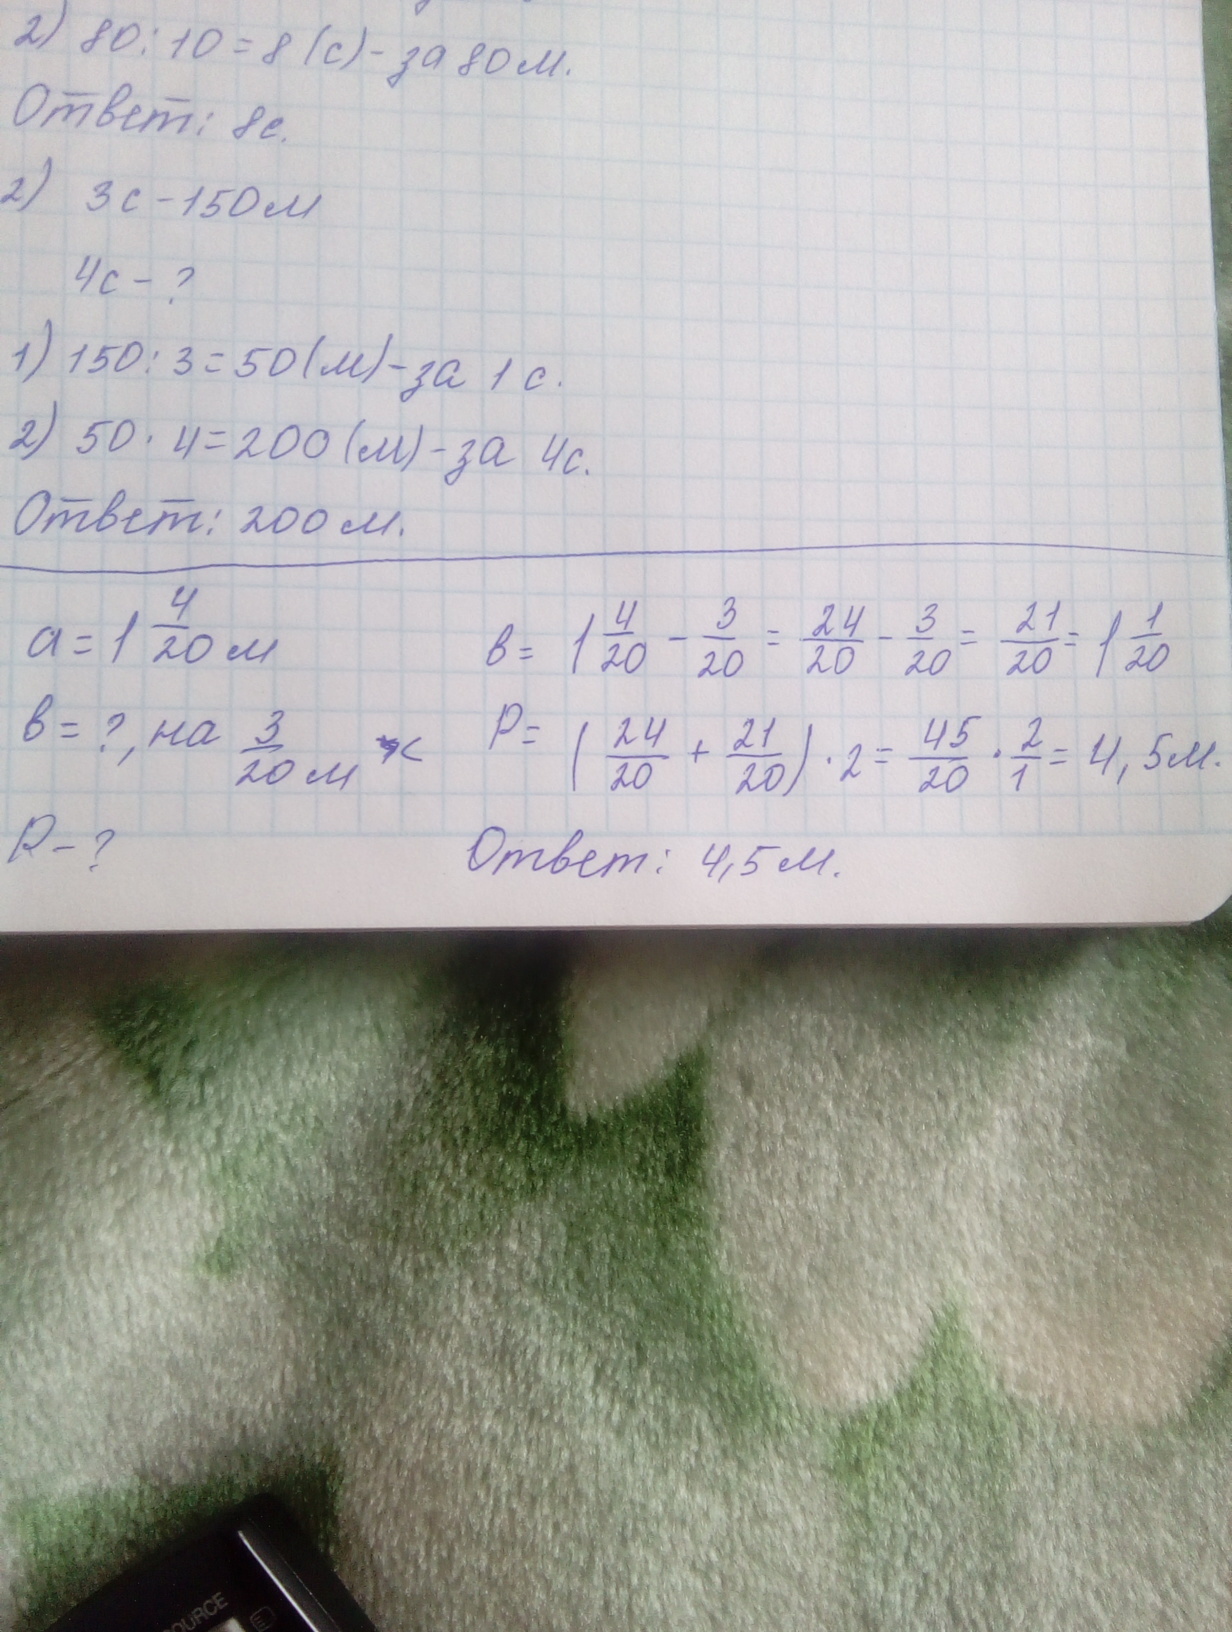 2) 80:10=8(с)-за 80м.
Ответ: 8с.
2) 3с-150м
4с-?
1) 150:3=50(м)-за 1с.
2) 50·4=200(м)-за 4с.
Ответ: 200м.
a=1 4/20 м
в=?, на 3/20 м <
P-?
в= 1 4/20 - 3/20 = 24/20 - 3/20 = 21/20 = 1 1/20
P= (24/20 + 21/20)·2= 45/20 · 2/1 = 4,5м.
Ответ: 4,5м.
SOURCE